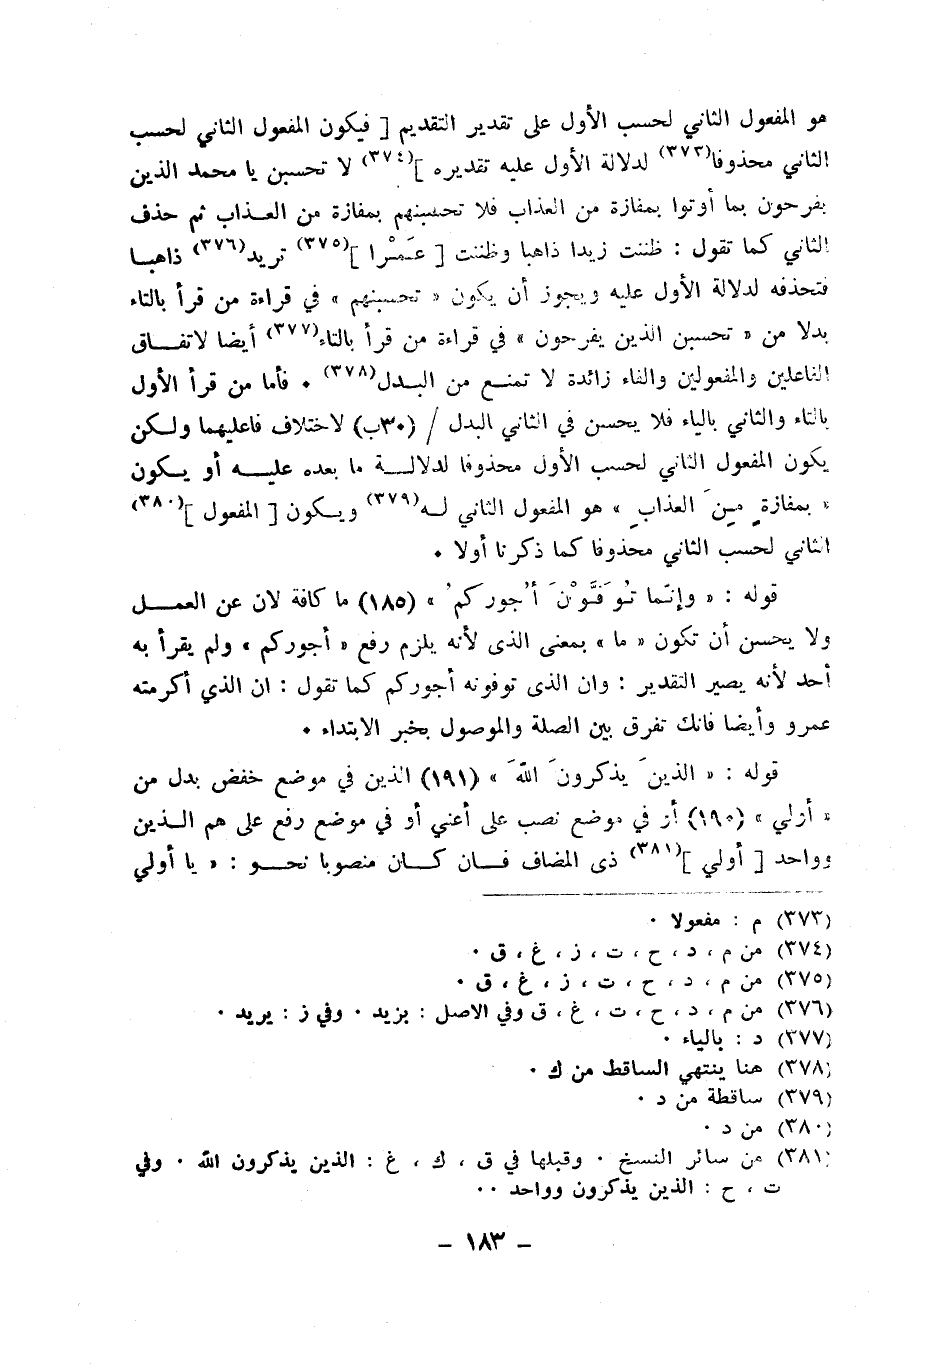 هو المفعول الثاني لحسب الأول على تقدير التقديم [ فيكون المفعول الثاني لحسب
الثاني محذوفا(٣٧٣) لدلالة الأول عليه تقديره ](٣٧٤) لا تحسبن يا محمد الذين
يفرحون بما أوتوا بمفازة من العذاب فلا تحسبنهم بمفازة من العـذاب ثم حذف
الثاني كما تقول : ظننت زيدا ذاهبا وظننت [ عَمْرا ](٣٧٥) تريد(٣٧٦) ذاهبـا
فتحذفه لدلالة الأول عليه ويجوز أن يكون « تحسبنهم » في قراءة من قرأ بالتاء
بدلا من « تحسبن الذين يفرحون » في قراءة من قرأ بالتاء(٣٧٧) أيضا لاتفـاق
الفاعلين والمفعولين والفاء زائدة لا تمنـع من البـدل(٣٧٨) ٠ فأما من قرأ الأول
بالتاء والثاني بالياء فلا يحسن في الثاني البدل / (٣٠ب) لاختلاف فاعليهما ولـكن
يكون المفعول الثاني لحسب الأول محذوفا لدلالـة ما بعده عليـه أو يـكون
« بمفازةٍ مِنَ العذابِ » هو المفعول الثاني لـه(٣٧٩) ويـكون [ المفعول ](٣٨٠)
الثاني لحسب الثاني محذوفا كما ذكرنا أولا ٠
قوله : « وإنّما تُوَفَّوْنَ أُجوركمْ » (١٨٥) ما كافة لان عن العمـل
ولا يحسن أن تكون « ما » بمعنى الذى لأنه يلزم رفع « أجوركم » ولم يقرأ به
أحد لأنه يصير التقدير : وان الذى توفونه أجوركم كما تقول : ان الذي أكرمته
عمرو وأيضا فانك تفرق بين الصلة والموصول بخبر الابتداء ٠
قوله : « الذينَ يذكرونَ اللهَ » (١٩١) الذين في موضع خفض بدل من
« أولي » (١٩٠) أو في موضع نصب على أعني أو في موضع رفع على هم الـذين
وواحد [ أولي ](٣٨١) ذى المضاف فـان كـان منصوبا نحـو : « يا أولي
(٣٧٣) م : مفعولا ٠
(٣٧٤) من م ، د ، ح ، ت ، ز ، غ ، ق ٠
(٣٧٥) من م ، د ، ح ، ت ، ز ، غ ، ق ٠
(٣٧٦) من م ، د ، ح ، ت ، غ ، ق وفي الاصل : يزيد ٠ وفي ز : يريد ٠
(٣٧٧) د : بالياء ٠
(٣٧٨) هنا ينتهي الساقط من ك ٠
(٣٧٩) ساقطة من د ٠
(٣٨٠) من د ٠
(٣٨١) من سائر النسخ ٠ وقبلها في ق ، ك ، غ : الذين يذكرون الله ٠ وفي
ت ، ح : الذين يذكرون وواحد ٠٠
– ١٨٣ –